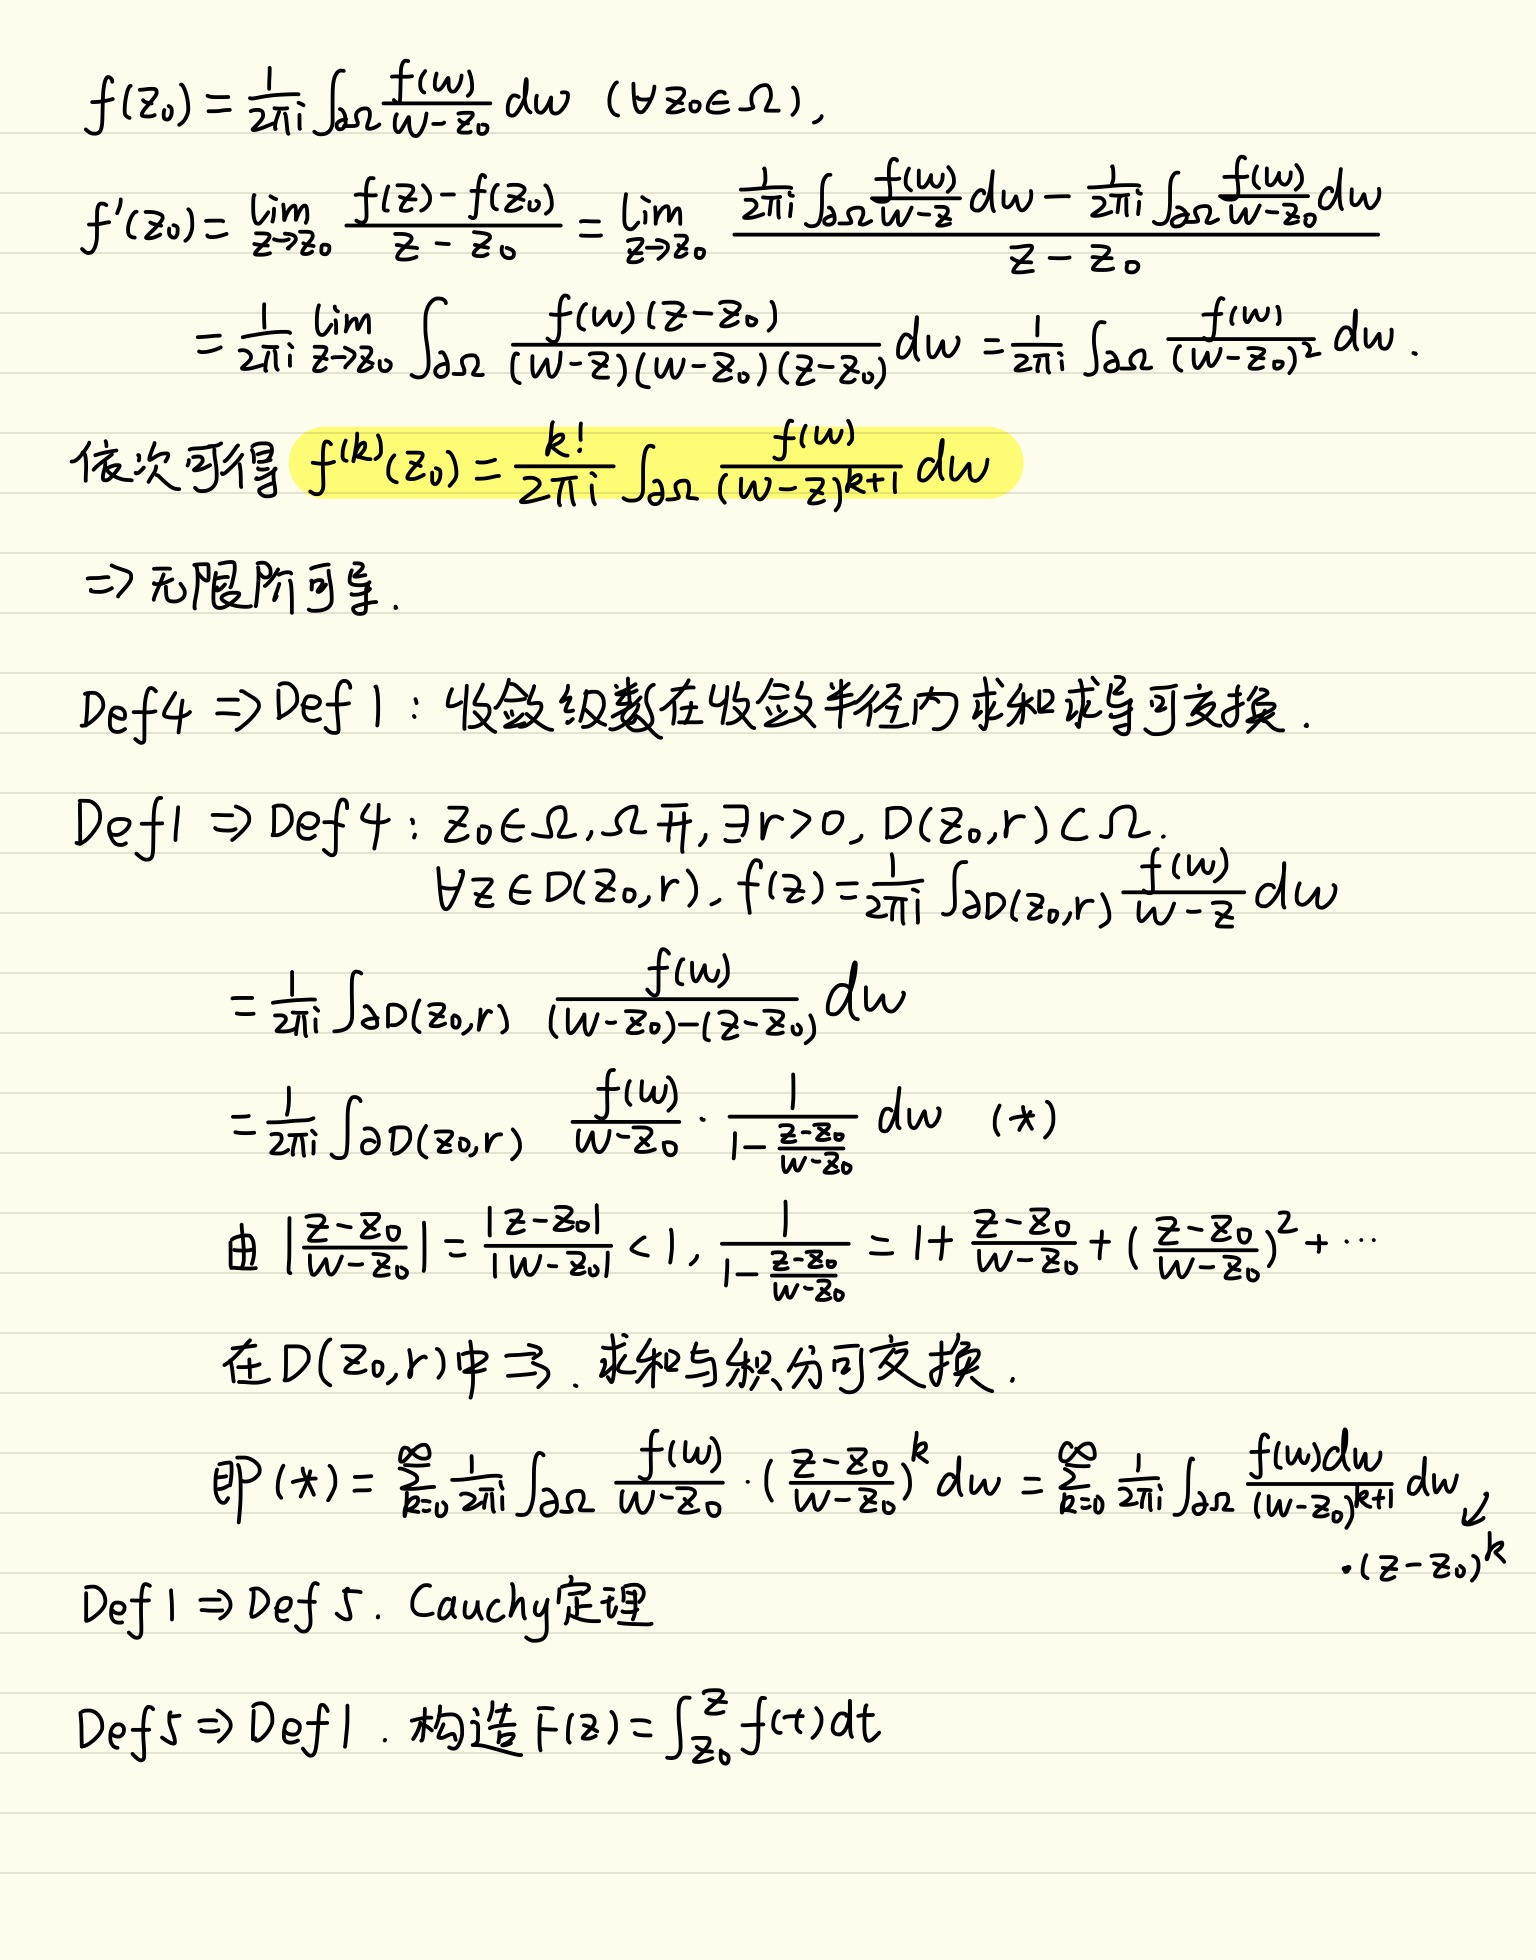 f(z₀) = \frac{1}{2πi} ∫_{∂Ω} \frac{f(w)}{w-z₀} dw (∀z₀∈Ω),
f'(z₀) = \lim_{z→z₀} \frac{f(z)-f(z₀)}{z-z₀} = \lim_{z→z₀} \frac{\frac{1}{2πi} ∫_{∂Ω} \frac{f(w)}{w-z} dw - \frac{1}{2πi} ∫_{∂Ω} \frac{f(w)}{w-z₀} dw}{z-z₀}
= \frac{1}{2πi} \lim_{z→z₀} ∫_{∂Ω} \frac{f(w)(z-z₀)}{(w-z)(w-z₀)(z-z₀)} dw = \frac{1}{2πi} ∫_{∂Ω} \frac{f(w)}{(w-z₀)^2} dw.
依次可得 f^{(k)}(z₀) = \frac{k!}{2πi} ∫_{∂Ω} \frac{f(w)}{(w-z)^{k+1}} dw
⇒ 无限阶可导.
Def4 ⇒ Def1: 收敛级数在收敛半径内求和求导可交换.
Def1 ⇒ Def4: z₀∈Ω, Ω开, ∃r>0, D(z₀,r)⊂Ω.
∀z∈D(z₀,r), f(z) = \frac{1}{2πi} ∫_{∂D(z₀,r)} \frac{f(w)}{w-z} dw
= \frac{1}{2πi} ∫_{∂D(z₀,r)} \frac{f(w)}{(w-z₀)-(z-z₀)} dw
= \frac{1}{2πi} ∫_{∂D(z₀,r)} \frac{f(w)}{w-z₀} · \frac{1}{1-\frac{z-z₀}{w-z₀}} dw (*)
由 |\frac{z-z₀}{w-z₀}| = \frac{|z-z₀|}{|w-z₀|} < 1, \frac{1}{1-\frac{z-z₀}{w-z₀}} = 1 + \frac{z-z₀}{w-z₀} + (\frac{z-z₀}{w-z₀})^2 + ⋯
在D(z₀,r)中⇉. 求和与积分可交换.
即(*) = \sum_{k=0}^{∞} \frac{1}{2πi} ∫_{∂Ω} \frac{f(w)}{w-z₀} · (\frac{z-z₀}{w-z₀})^k dw = \sum_{k=0}^{∞} \frac{1}{2πi} ∫_{∂Ω} \frac{f(w)dw}{(w-z₀)^{k+1}} dw ↙
·(z-z₀)^k
Def1 ⇒ Def5. Cauchy定理
Def5 ⇒ Def1. 构造F(z) = ∫_{z₀}^{z} f(t)dt